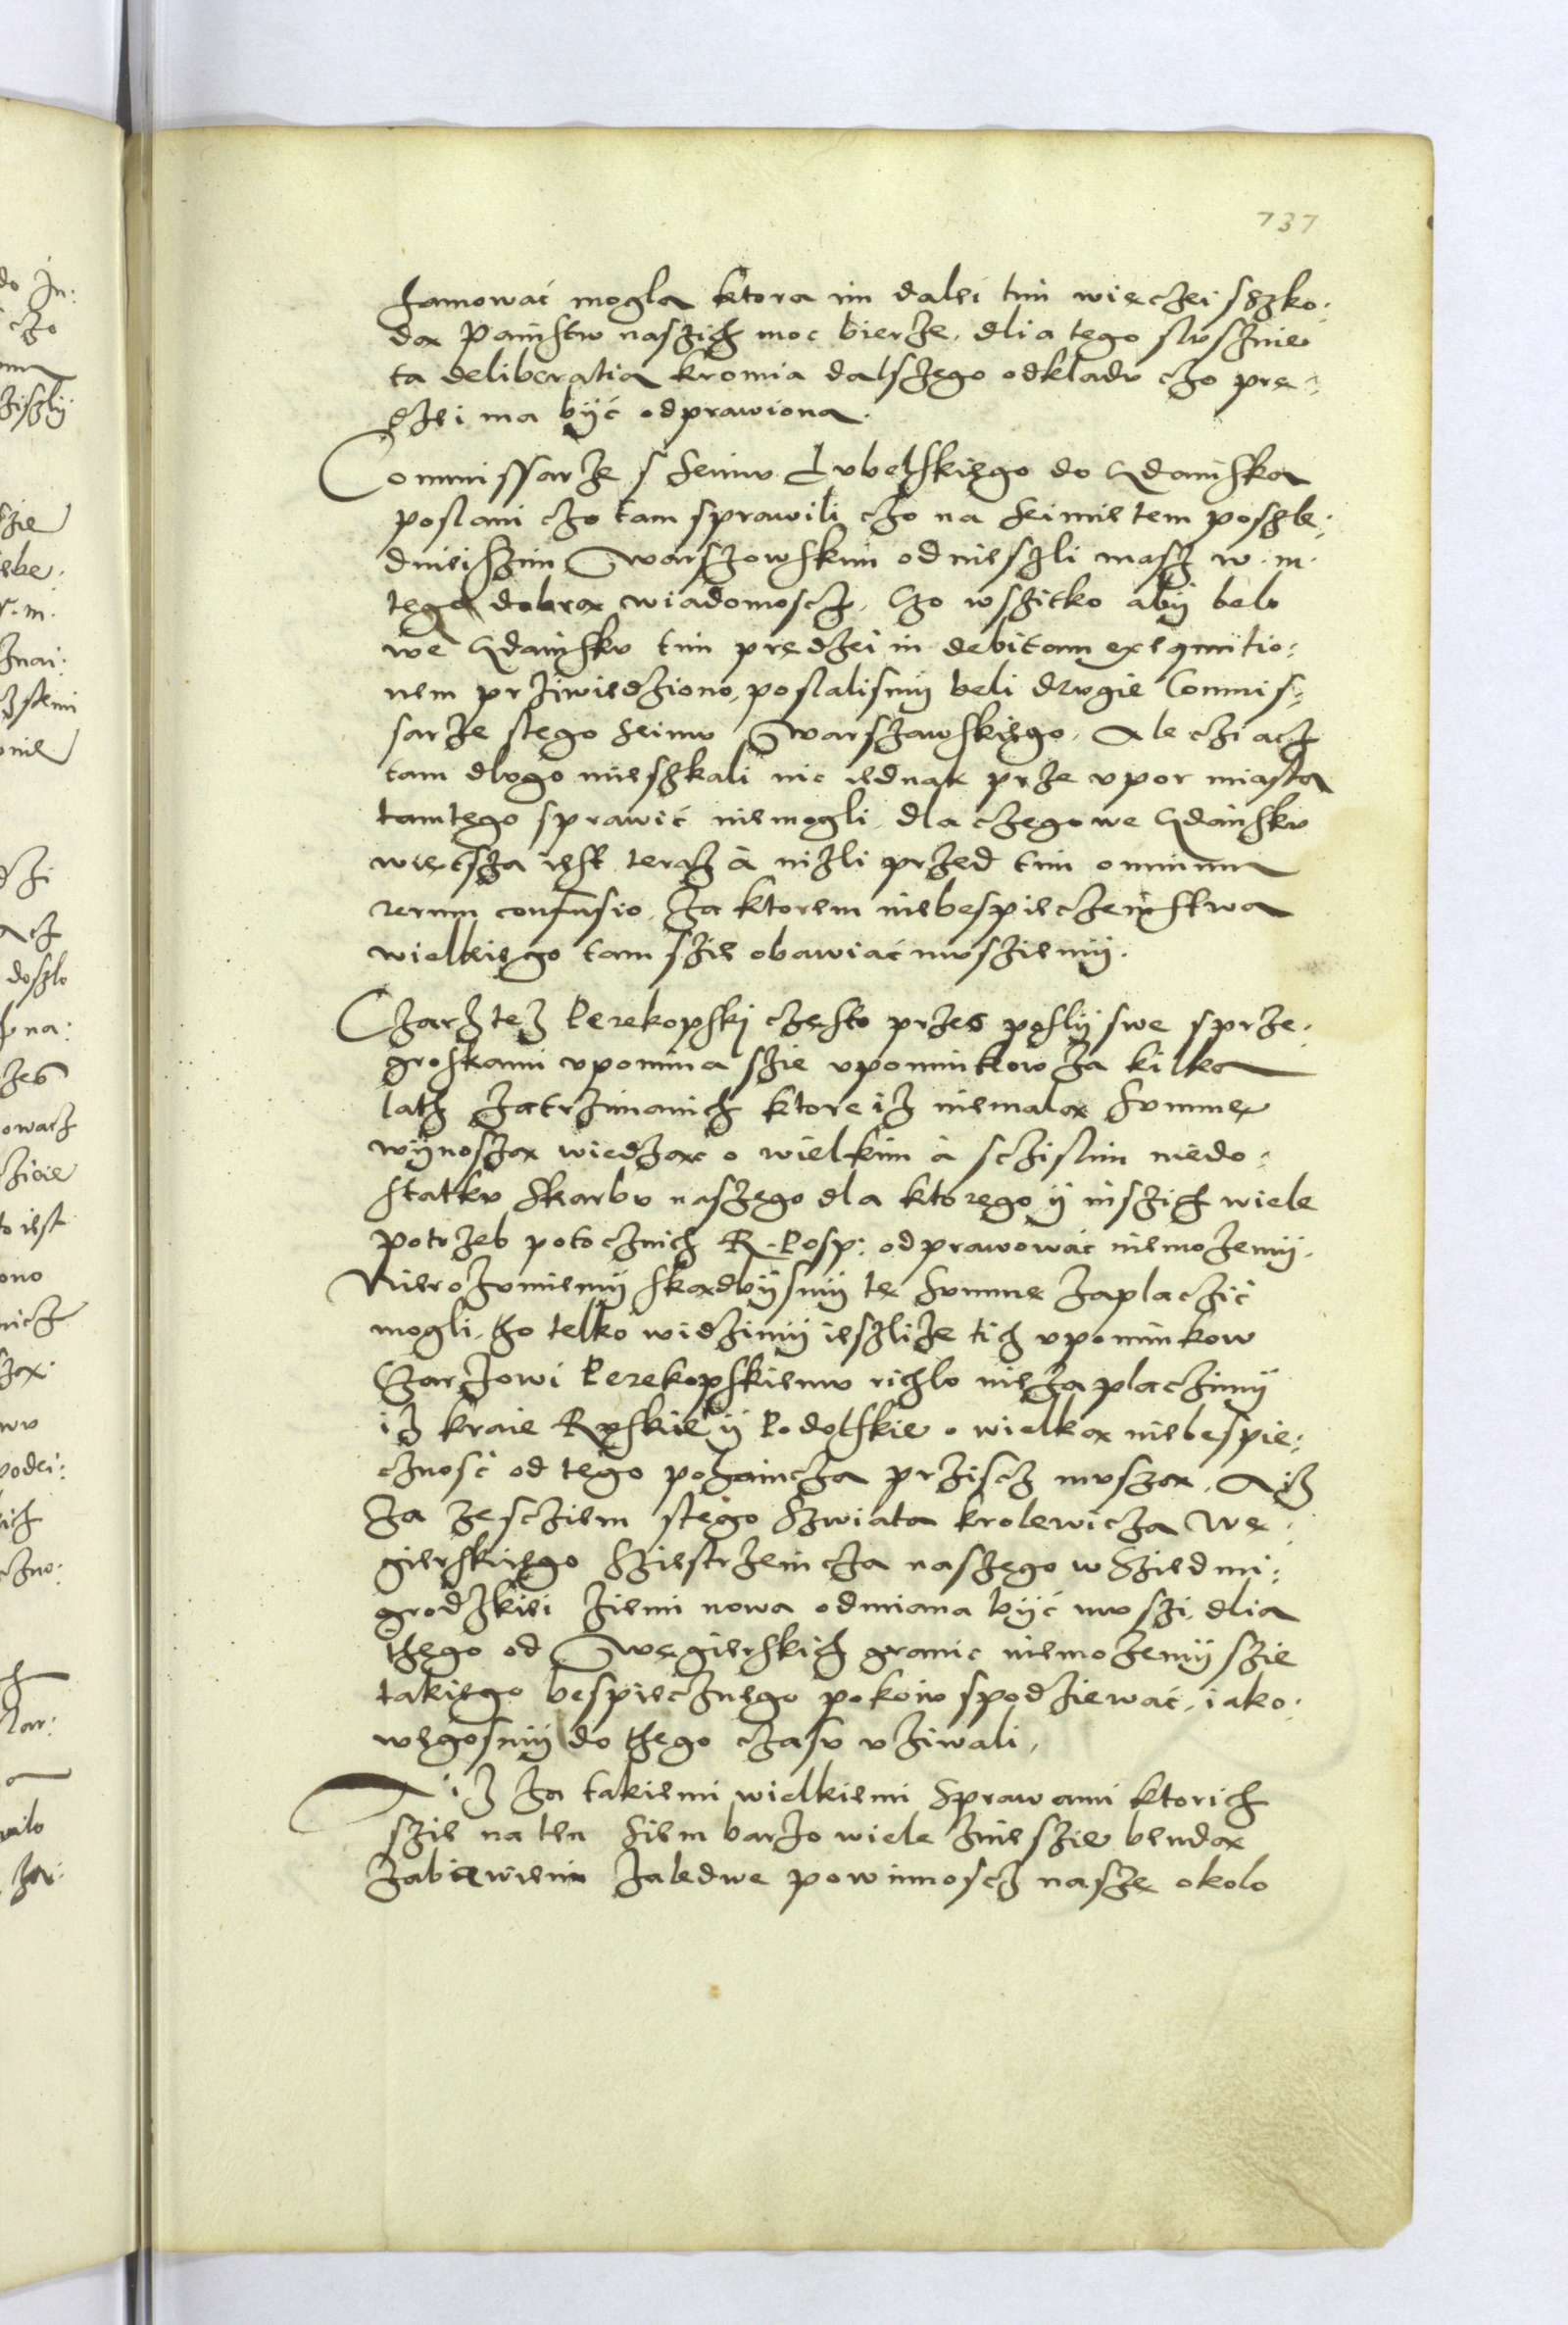 737
hamować mogla ktora im dalei tim więczei sszko:
dą Pąństw naszich moc bierze, dlia tego slusznie
ta deliberatia kromia dalszego odkladu czo prę:
dzei ma być odprawiona.
Commissarze s Seimu Lubelskięgo do Gdąńska
poslani czo tam sprawili czo na Seimie tem poszle:
dnieiszim Warszowskim odnieszli masz w. m.
tego dobrą wiadomoscz, Czo wszitko abÿ belo
we Gdąńsku tim prędzei in debitam exequutio:
nem prziwiedziono, poslalismÿ beli drugie Commis:
sarze stego Seimu Warszawskięgo. Ale cziacz
tam dlugo mieszkali nic iednak prze upor miasta
tamtęgo sprawić niemogli, dla czego we Gdańsku
więtsza iest teraz à nizli przed tim omnium
rerum confusio, Za ktorem niebespieczeństwa
wielkięgo tam szie obawiać musziemÿ.
Czarz tez Perekopski często przes poslÿ swe sprze:
groskami upomina szie upominkow za kilka
latz zatrzimanich ktore iz niemalą Summę
wÿnoszą wiedząc o wielkim à sczislim niedo:
statku Skarbu naszego dla ktorego ÿ inszich wiele
potrzeb potocznich R. Posp: odprawować niemozemÿ.
Nierozumiemÿ skądbÿsmÿ tę Summę zaplaczić
mogli, to telko widzimÿ ieszlize tich upominkow
Czarzowi Perekopskiemu richlo niezaplaczimÿ
iz kraie Ruskie ÿ Podolskie o wielką niebespie:
czność od tego pohańcza prziscz muszą, A iz
Za zesczięm stego Szwiata krolewicza Wę:
gierskięgo Sziestrzeńcza naszego w Sziedmi:
grodzkiei ziemi nowa odmiana być muszi, dlia
tego od Węgierskich granic niemozemÿ szie
takiego bespiecznego pokoiu spodziewać, iako:
wegosmÿ do tego czasu uziwali.
A iz za takiemi wielkiemi Sprawami ktorich
szie na ten Siem barzo wiele znieszie bendą
zabiawieni zaledwe powinnoscz naszę okolo